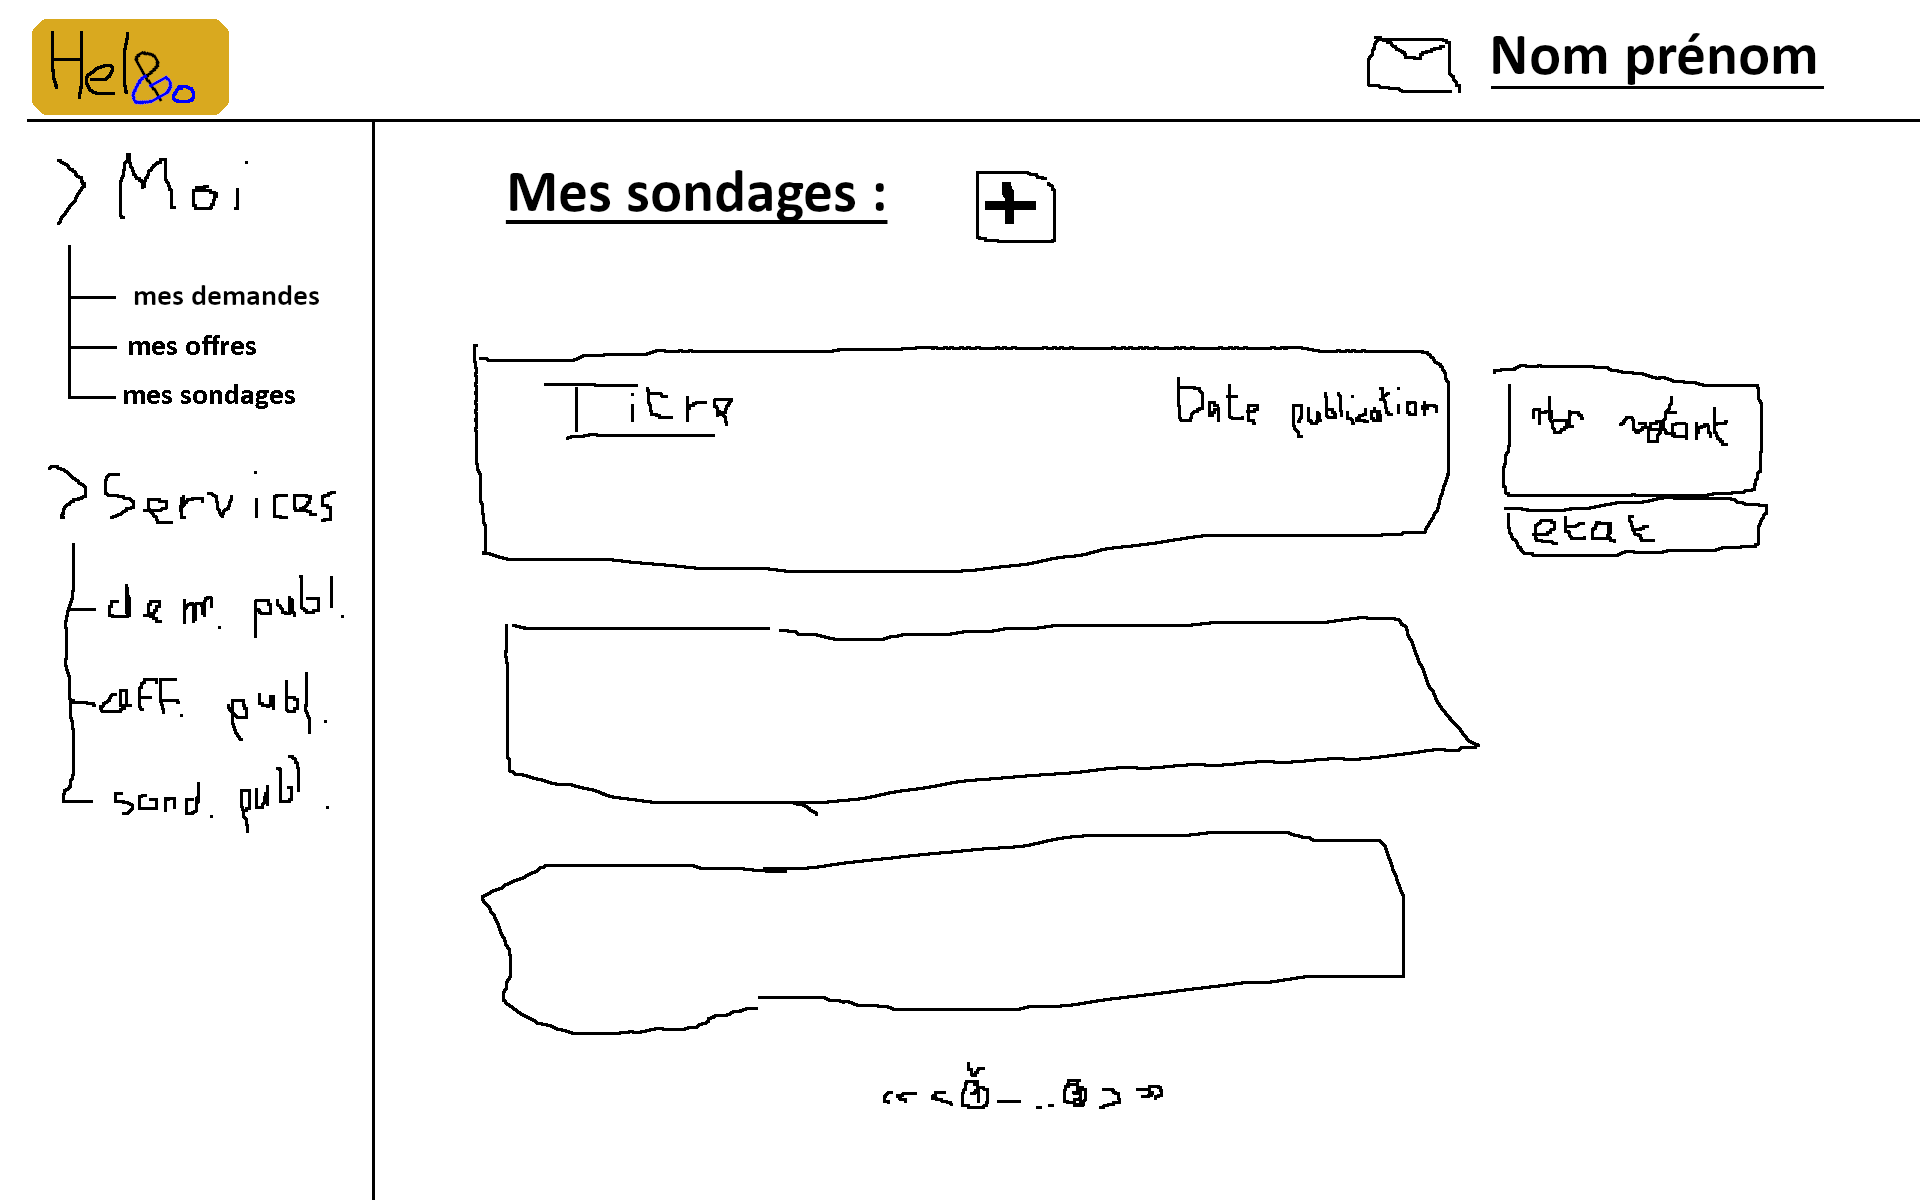 Hel&o
Nom prénom
> Moi
mes demandes
mes offres
mes sondages
> Services
dem. publ.
off. publ.
sond. publ.
Mes sondages :
+
Titre
Date publication
nbr votant
etat